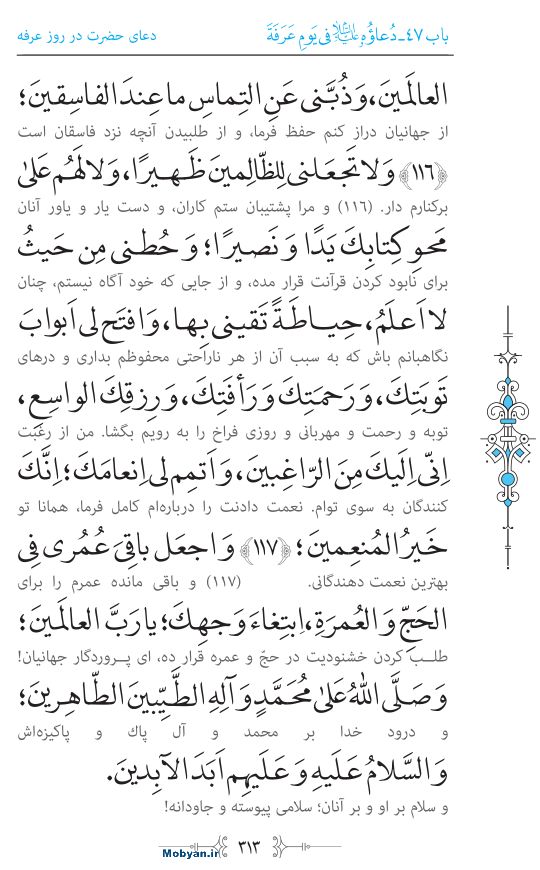 باب ٤٧ـ دُعاؤُهُ عليه‌السلام فى يَومِ عَرَفَةَ
دعای حضرت در روز عرفه
العالَمينَ، وَ ذُبَّنى عَنِ التِماسِ ما عِندَ الفاسِقينَ؛
از جهانیان دراز کنم حفظ فرما، و از طلبیدن آنچه نزد فاسقان است
﴿١١٦﴾ وَ لا تَجعَلنى لِلظّالِمينَ ظَهيرًا، وَ لا لَهُم عَلىٰ
برکنارم دار. (١١٦) و مرا پشتیبان ستم کاران، و دست یار و یاور آنان
مَحوِ كِتابِكَ يَدًا وَ نَصيرًا؛ وَ حُطنى مِن حَيثُ
برای نابود کردن قرآنت قرار مده، و از جایی که خود آگاه نیستم، چنان
لا اَعلَمُ، حِياطَةً تَقينى بِها، وَ افتَح لى اَبوابَ
نگاهبانم باش که به سبب آن از هر ناراحتی محفوظم بداری و درهای
تَوبَتِكَ، وَ رَحمَتِكَ وَ رَأفَتِكَ، وَ رِزقِكَ الواسِعِ،
توبه و رحمت و مهربانی و روزی فراخ را به رویم بگشا. من از رغبت
اِنّى اِلَيكَ مِنَ الرّاغِبينَ، وَ اَتمِم لى اِنعامَكَ؛ اِنَّكَ
کنندگان به سوی توام. نعمت دادنت را درباره‌ام کامل فرما، همانا تو
خَيرُ المُنعِمينَ؛ ﴿١١٧﴾ وَ اجعَل باقِىَ عُمُرى فِى
بهترین نعمت دهندگانی. (١١٧) و باقی مانده عمرم را برای
الحَجِّ وَ العُمرَةِ، ابتِغاءَ وَجهِكَ؛ يا رَبَّ العالَمينَ؛
طلـب کردن خشنودیت در حجّ و عمره قرار ده، ای پـروردگار جهانیان!
وَ صَلَّى اللّٰهُ عَلىٰ مُحَمَّدٍ وَ آلِهِ الطَّيِّبينَ الطّاهِرينَ؛
و درود خدا بر محمد و آل پاك و پاکیزه‌اش
وَ السَّلامُ عَلَيهِ وَ عَلَيهِم اَبَدَ الآبِدينَ.
و سلام بر او و بر آنان؛ سلامی پیوسته و جاودانه!
٣١٣
Mobyan.ir